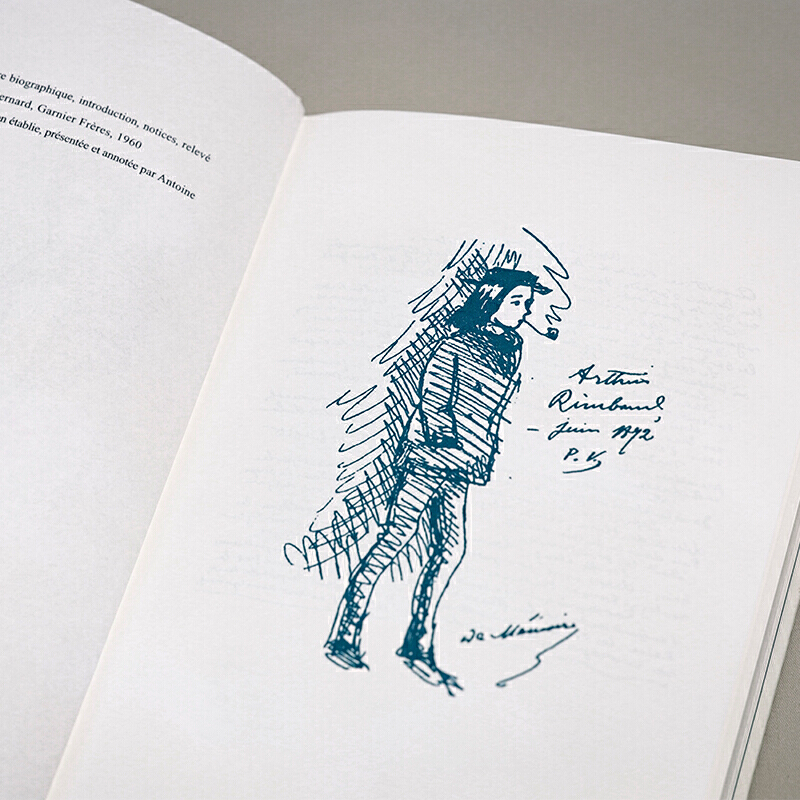 e biographique, introduction, notices, relevé
ernard, Garnier Frères, 1960
on établie, présentée et annotée par Antoine
Arthur
Rimbaud,
- juin 1872
P. V.
De Mémoire